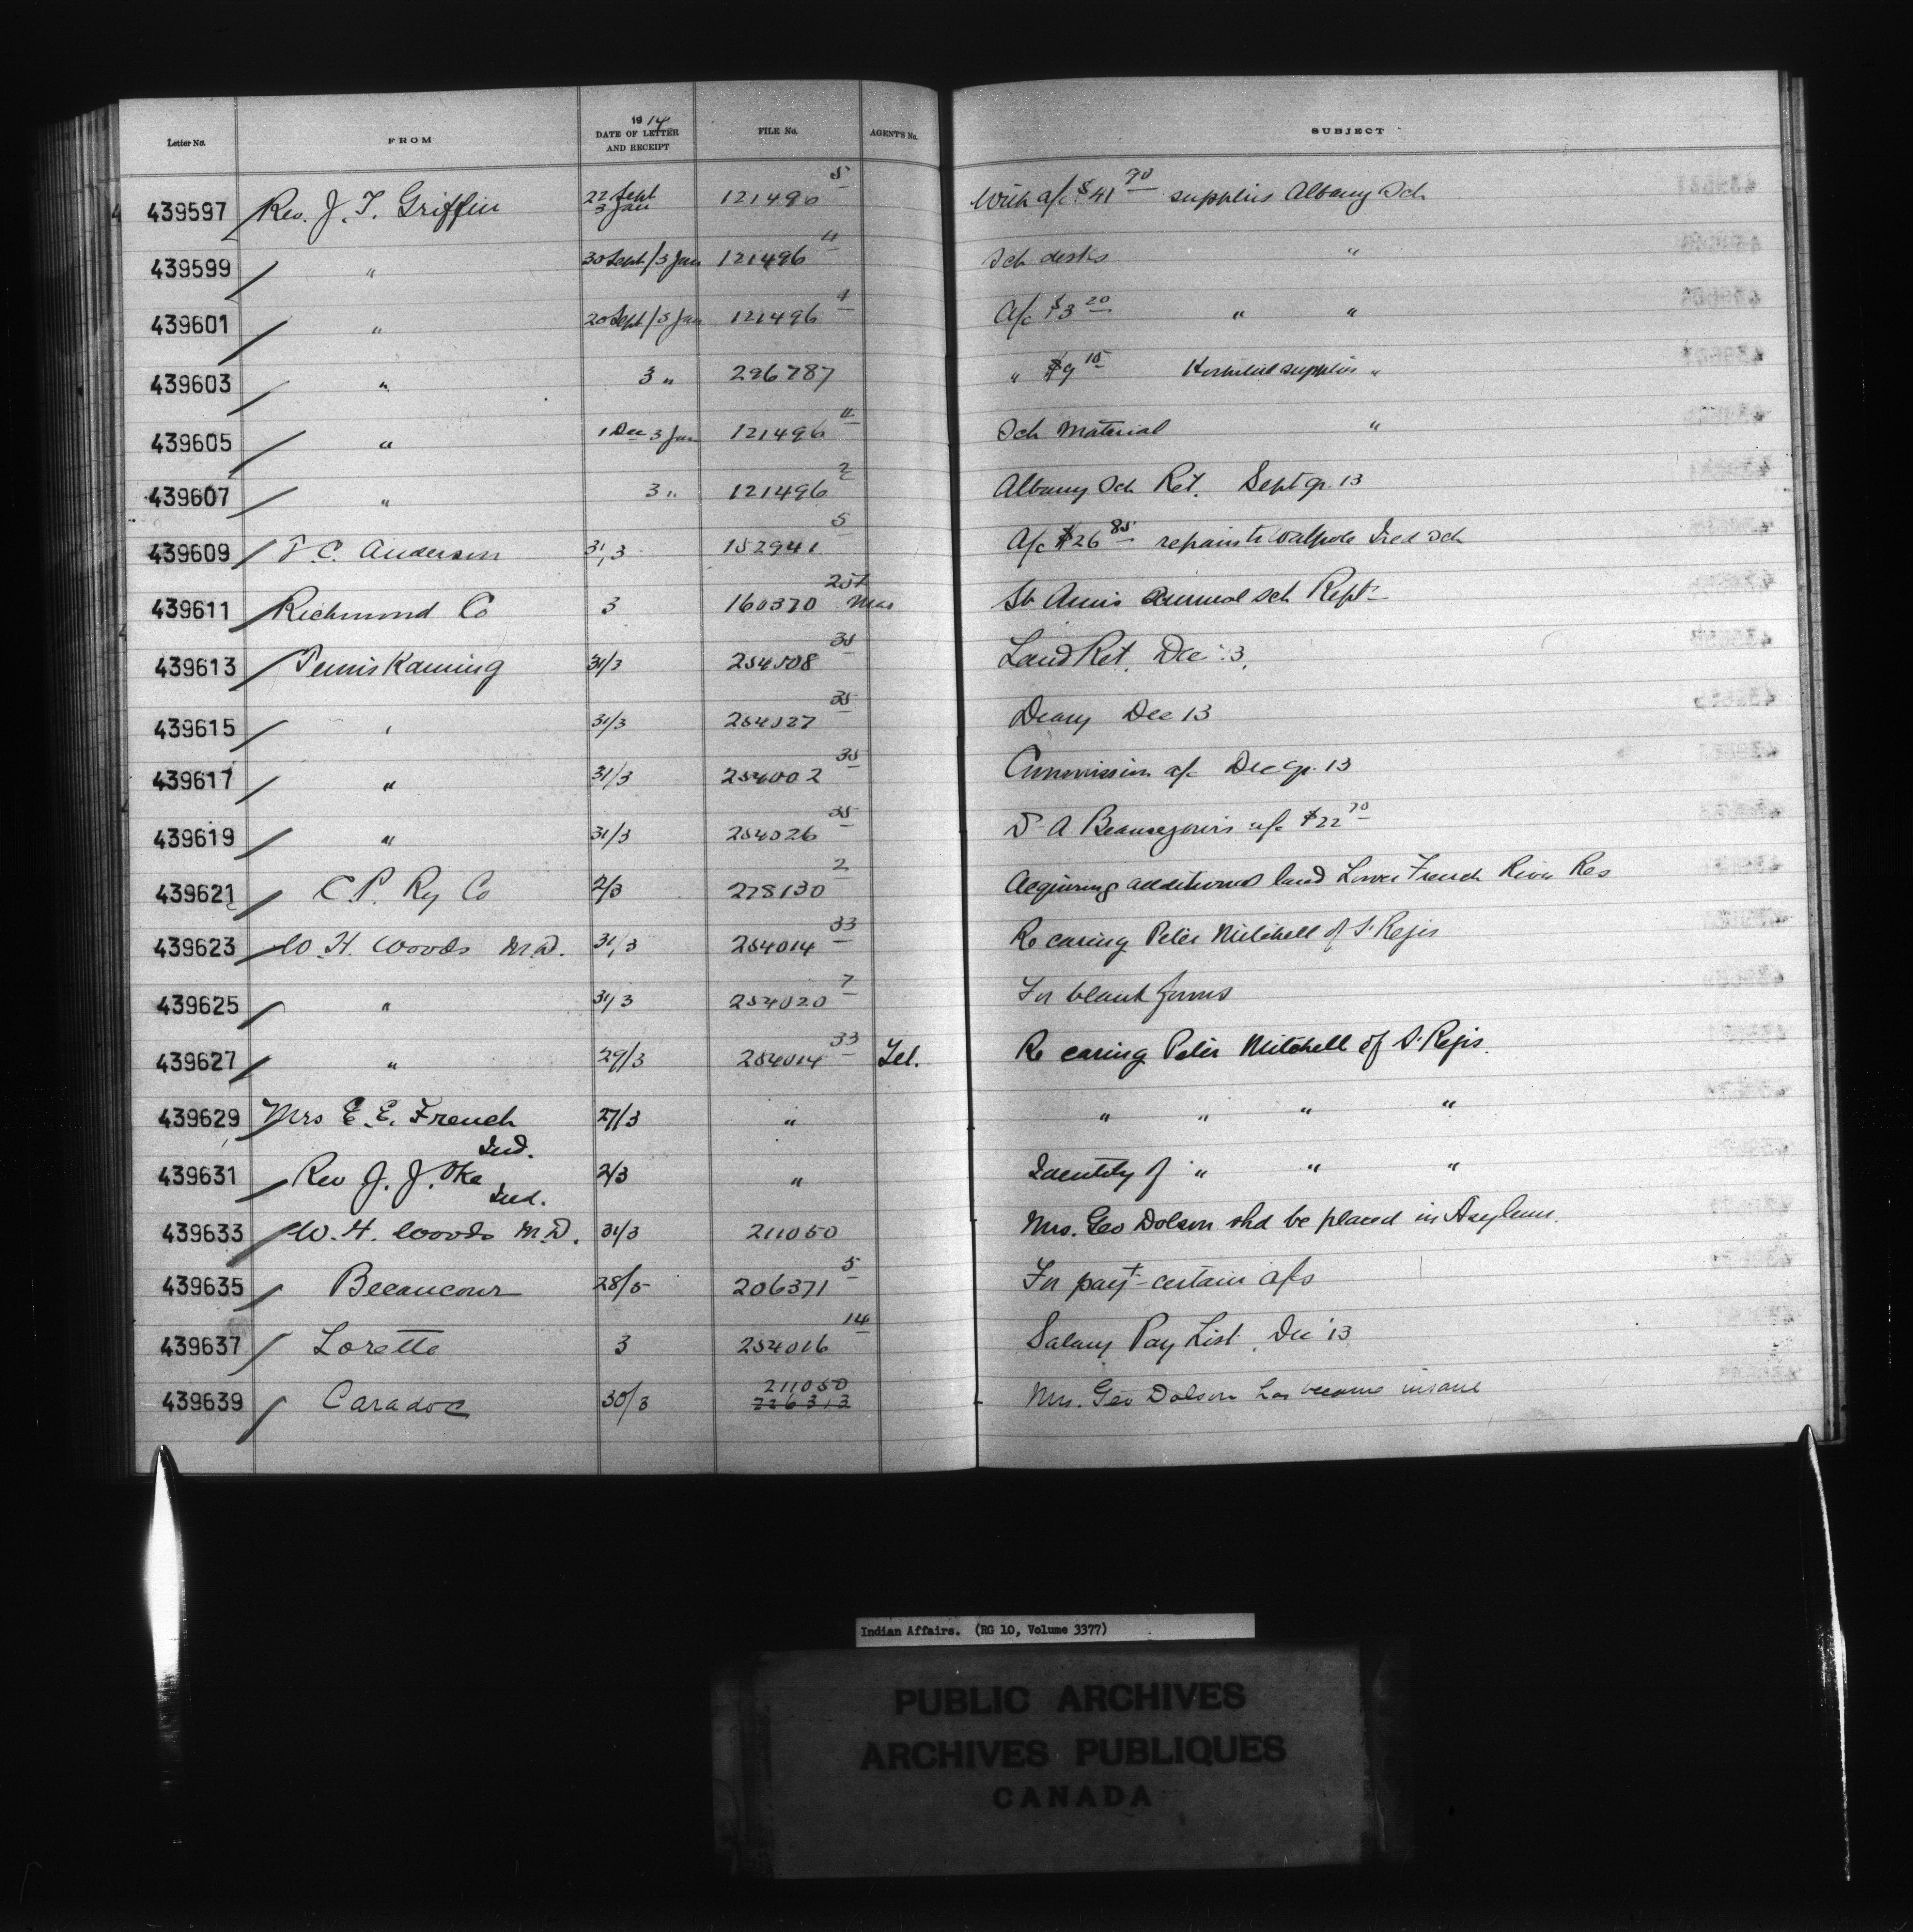 Letter No. FROM 1914 DATE OF LETTER AND RECEIPT FILE No. AGENT'S No. SUBJECT
439597 Rev. J. T. Griffin 22 Sept 3 Jan 121496 5 With a/c $41 70 supplies Albany Sch
439599 " 30 Sept/3 Jan 121496 4 Sch desks "
439601 " 20 Sept/3 Jan 121496 4 A/c $3 20 " "
439603 " 3 " 296787 " $9 15 Hospital supplies "
439605 " 1 Dec 3 Jan 121496 4 Sch Material "
439607 " 3 " 121496 2 Albany Sch Ret. Sept qr. 13
439609 T. C. Anderson 31/3 152941 5 A/c $26 85 repairs to Walpole Isld Sch
439611 Richmond Co 3 160370 Mar St Annis annual Sch Rept
439613 Temiskaming 31/3 254508 35 Land Ret. Dec 13.
439615 " 31/3 254027 35 Diary Dec 13
439617 " 31/3 254002 35 Commission a/c Dec qr. 13
439619 " 31/3 254026 35 D. A a/c $22 70
439621 C. P. Ry Co 2/3 278130 2 Acquiring additional land Lower French River Res
439623 W. H. Woods M.D. 31/3 254014 33 Re caring Peter Mitchell of S. Regis
439625 " 31/3 254020 7 For blank forms
439627 " 29/3 254014 33 Tel. Re caring Peter Mitchell of S. Regis.
439629 Mrs E. E. French Ind. 27/3 " " " " "
439631 Rev J. J. Oke Ind. 2/3 " Identity of " " "
439633 W. H. Woods M.D. 31/3 211050 Mrs. Geo Dolson shd be placed in Asylum.
439635 Becancour 28/5 206371 5 For payt certain a/cs
439637 Lorette 3 254016 14 Salary Pay List. Dec '13
439639 Caradoc 30/3 211050 226313 Mrs. Geo Dolson has become insane
Indian Affairs. (RG 10, Volume 3377)
PUBLIC ARCHIVES
ARCHIVES PUBLIQUES
CANADA